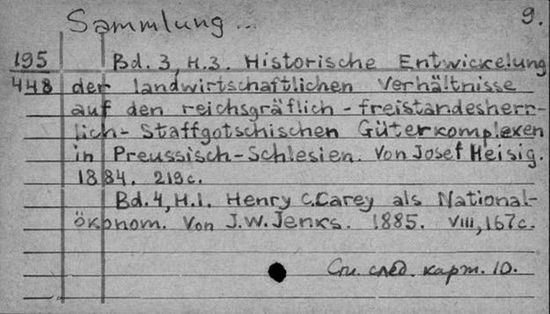 Sammlung... 9.
195 Bd. 3, H.3. Historische Entwickelung
448 der landwirtschaftlichen Verhältnisse
auf den reichsgräflich - freistandesherr-
lich - Staffgotschischen Güterkomplexen
in Preussisch-Schlesien. Von Josef Heisig.
1884. 219c.
Bd.4, H.1. Henry C.Carey als National-
ökonom. Von J.W.Jenks. 1885. VIII, 167c.
См. след. карт. 10.